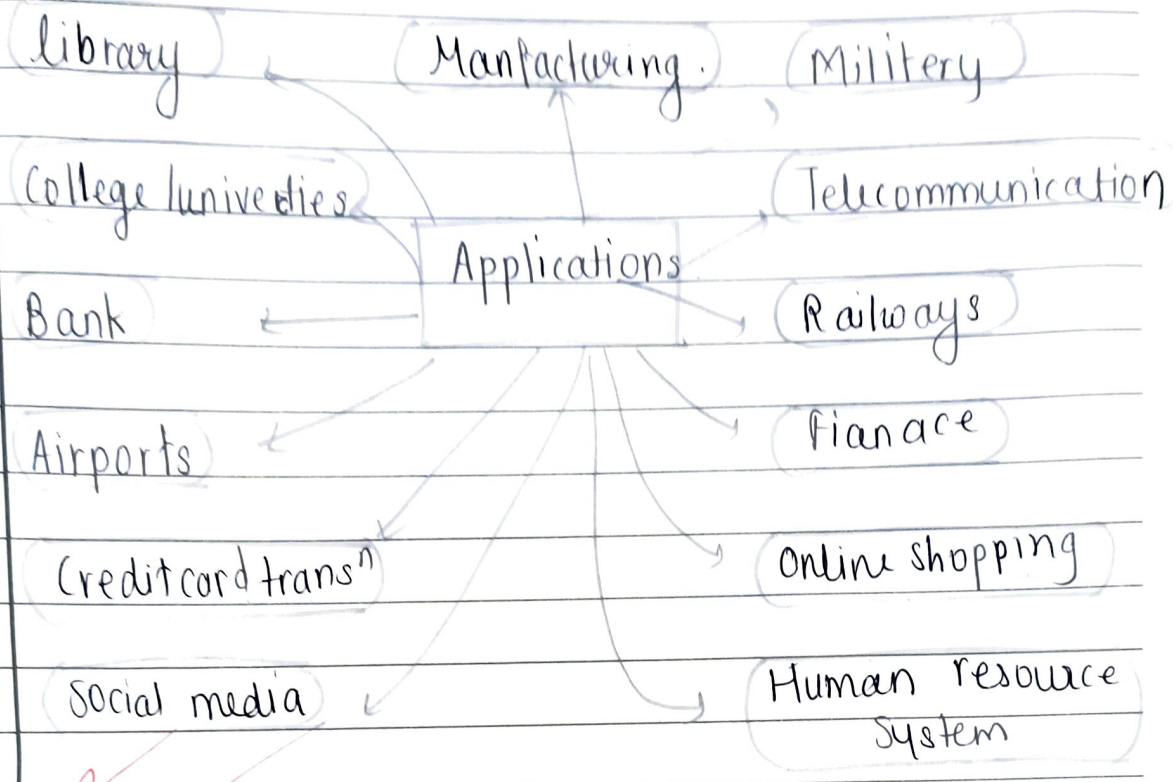 library
Manfacturing.
Militery
College / univeties
Telecommunication
Applications
Bank
Railways
Airports
Fianace
Credit card transⁿ
Online shopping
Social media
Human resource
System